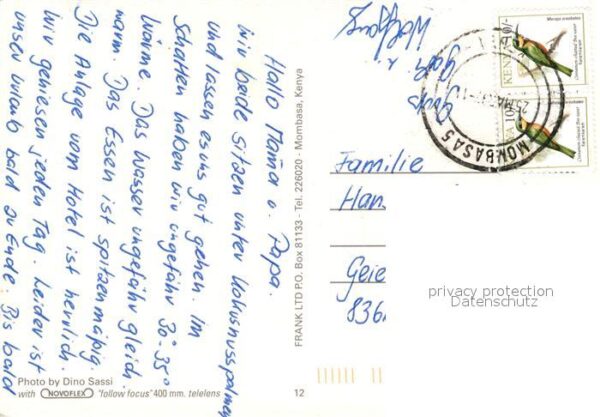 Hallo Mama u. Papa.
Wir beide sitzen unter Kokusnusspalmen
und lassen es uns gut gehen. Im
Schatten haben wir ungefähr 30°-35°
Wärme. Das Wasser ungefähr gleich
warm. Das Essen ist spitzenmäßig.
Die Anlage vom Hotel ist herrlich.
Wir geniesen jeden Tag. Leider ist
unser Urlaub bald zu Ende. Bis bald
Wolfgang
Gabi u.
Photo by Dino Sassi
with NOVOFLEX "follow focus" 400 mm. telelens
12
FRANK LTD P.O. Box 81133 - Tel. 226020 - Mombasa, Kenya
KENYA 10/-
Merops oreobates
Cinnamon-chested Bee-eater
MOMBASA 5
Familie
Han
Geie
836
privacy protection
Datenschutz